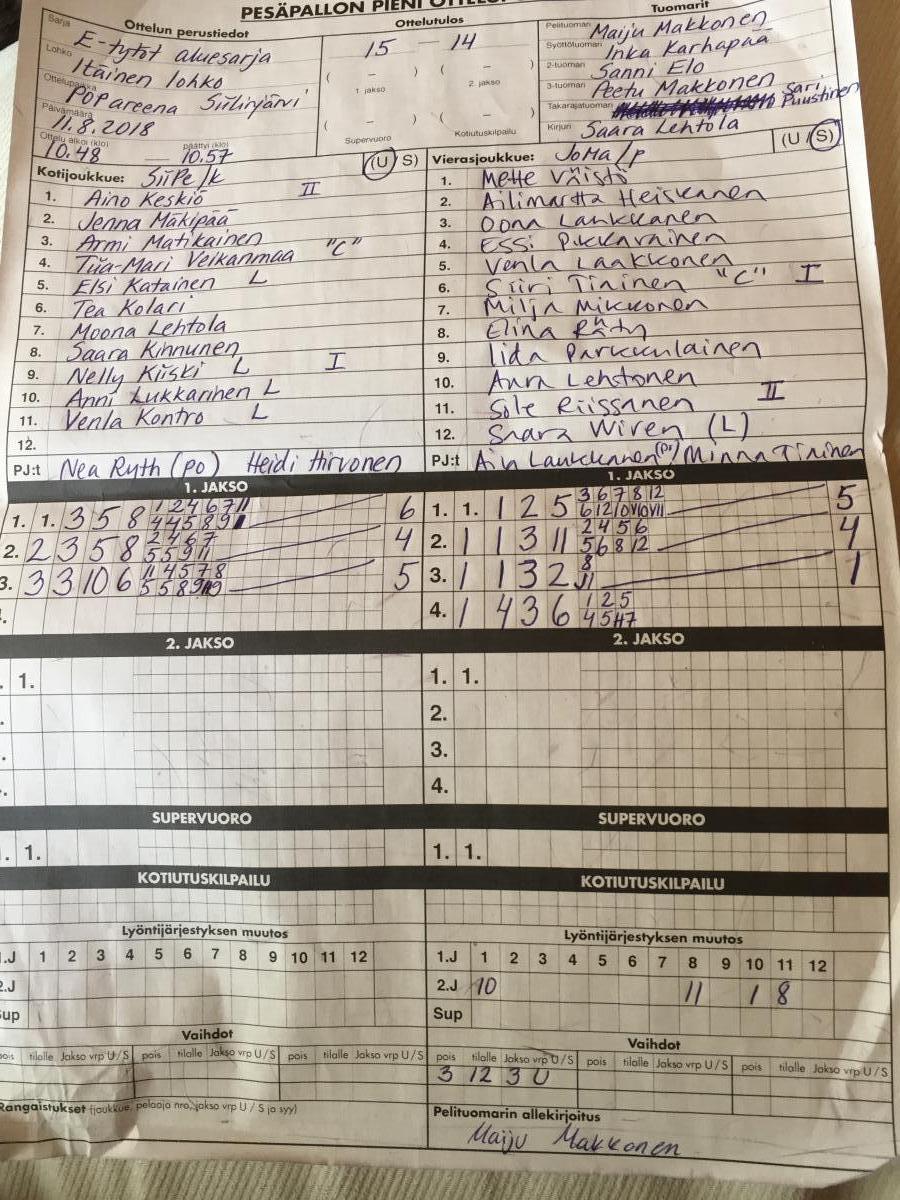 PESÄPALLON PIENI
Sarja Ottelun perustiedot Ottelutulos Tuomarit
E-tytöt aluesarja 15 - 14 Pelituomari Maiju Makkonen
Lohko Itäinen lohko ( - ) ( - ) Syöttötuomari Inka Karhapää
1. jakso 2. jakso 2-tuomari Sanni Elo
Ottelupaikka POPareena Siilinjärvi 3-tuomari Peetu Makkonen
Päivämäärä 11.8.2018 ( - ) ( - ) Takarajatuomari Sari Puustinen
Ottelu alkoi (klo) 10.48 päättyi (klo) 10.57 Supervuoro Kotiutuskilpailu Kirjuri Saara Lehtola
Kotijoukkue: SiiPe/k (U/S) Vierasjoukkue: JoMa/p (U/S)
1. Aino Keskiö II 1. Mette Väistö
2. Jenna Mäkipää 2. Ailimartta Heiskanen
3. Armi Matikainen 3. Oona Laukkanen
4. Tiia-Mari Veikanmaa "C" 4. Essi Pikkarainen
5. Elsi Katainen L 5. Venla Laakkonen
6. Tea Kolari 6. Siiri Tininen "C" I
7. Moona Lehtola 7. Milja Mikkonen
8. Saara Kinnunen 8. Elina Räty
9. Nelly Kiiski L I 9. Iida Parkkulainen
10. Anni Lukkarinen L 10. Anra Lehstonen
11. Venla Kontro L 11. Sole Riissanen II
12. 12. Saara Wiren (L)
PJ:t Nea Ruth (po) Heidi Hirvonen PJ:t Ain Laukkanen (po) / Minna Tininen
1. JAKSO 1. JAKSO
1. 1. 3 5 8 1 2 4 6 7 11 6 1. 1. 1 2 5 3 6 7 8 12 5
4 4 5 8 9
2. 2 3 5 8 2 4 6 7 4 2. 1 1 3 11 2 4 5 6 4
5 5 9 11 5 6 8 12
3. 3 3 10 6 11 4 5 7 8 5 3. 1 1 3 2 8 1
5 5 8 9 11
4. 1 4 3 6 1 2 5
2. JAKSO 2. JAKSO
1. 1. 1.
2.
3.
4.
SUPERVUORO SUPERVUORO
1. 1. 1.
KOTIUTUSKILPAILU KOTIUTUSKILPAILU
Lyöntijärjestyksen muutos Lyöntijärjestyksen muutos
1.J 1 2 3 4 5 6 7 8 9 10 11 12 1.J 1 2 3 4 5 6 7 8 9 10 11 12
2.J 2.J 10 11 1 8
Sup Sup
Vaihdot Vaihdot
pois tilalle Jakso vrp U/S pois tilalle Jakso vrp U/S pois tilalle Jakso vrp U/S pois tilalle Jakso vrp U/S pois tilalle Jakso vrp U/S pois tilalle Jakso vrp U/S
3 12 3 U
Rangaistukset (joukkue, pelaaja nro, jakso vrp U/S ja syy) Pelituomarin allekirjoitus
Maiju Makkonen